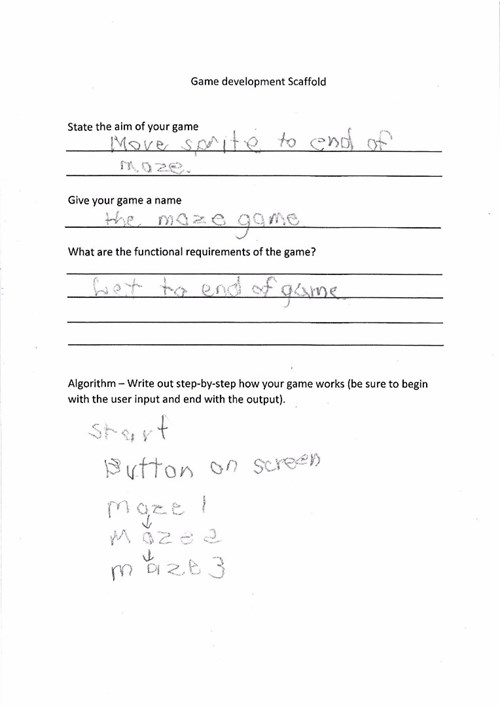 Game development Scaffold
State the aim of your game
Move sprite to end of
maze.
Give your game a name
the maze game
What are the functional requirements of the game?
Get to end of game
Algorithm – Write out step-by-step how your game works (be sure to begin
with the user input and end with the output).
Start
Button on screen
maze 1
↓
Maze 2
↓
maze 3